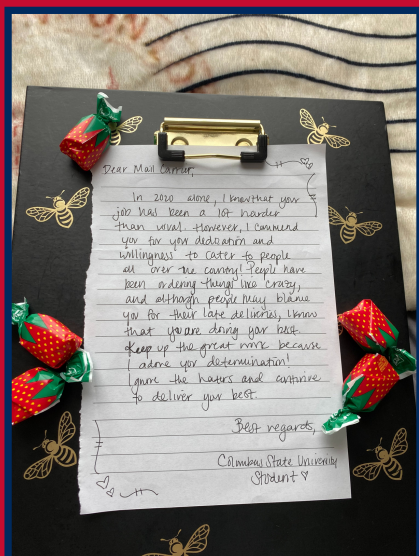 Dear Mail Carrier,
In 2020 alone, I know that your
job has been a lot harder
than usual. However, I commend
you for your dedication and
willingness to cater to people
all over the country! People have
been ordering things like crazy,
and although people may blame
you for their late deliveries, I know
that you are doing your best.
Keep up the great work because
I adore your determination!
Ignore the haters and continue
to deliver your best.
Best regards,
Columbus State University
Student